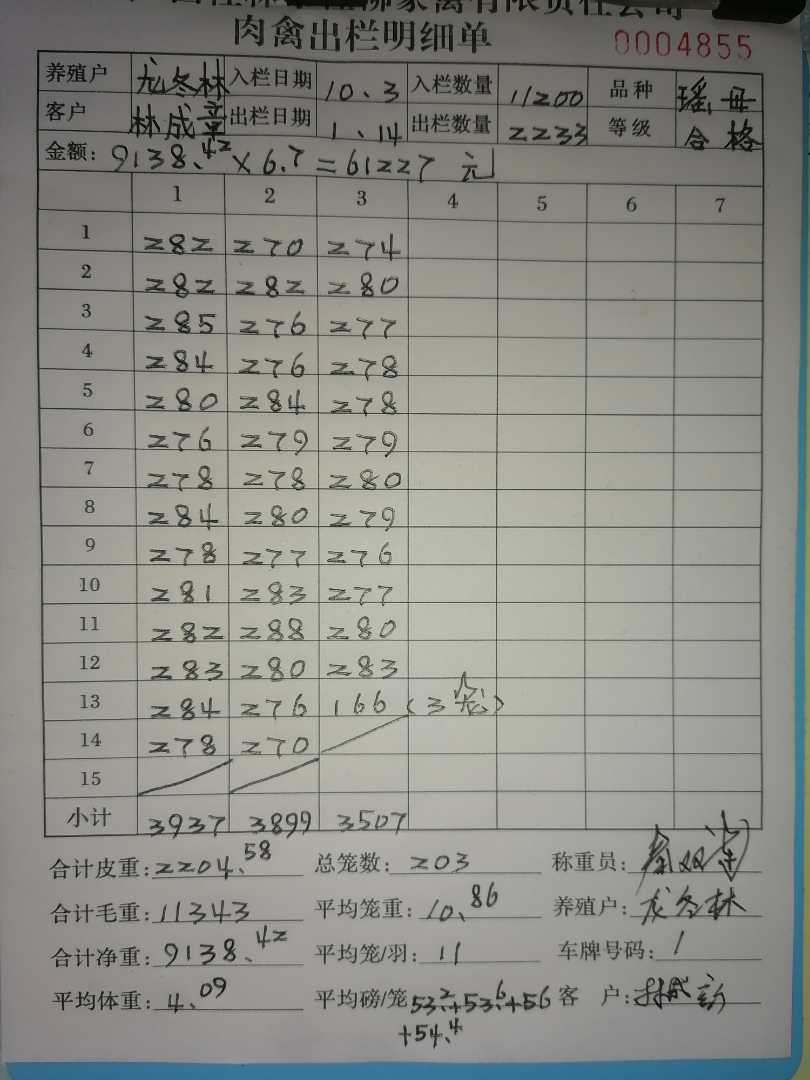 家禽有限责任公司
肉禽出栏明细单 0004855
养殖户 龙冬林 入栏日期 10、3 入栏数量 11200 品种 瑶母
客户 林成章 出栏日期 1、14 出栏数量 2233 等级 合格
金额: 9138.42×6.7=61227元
1 2 3 4 5 6 7
1 282 270 274
2 282 282 280
3 285 276 277
4 284 276 278
5 280 284 278
6 276 279 279
7 278 278 280
8 284 280 279
9 278 277 276
10 281 283 277
11 282 288 280
12 283 280 283
13 284 276 166 (3笼)
14 278 270
15
小计 3937 3899 3507
合计皮重: 2204.58 总笼数: 203 称重员:
合计毛重: 11343 平均笼重: 10.86 养殖户: 龙冬林
合计净重: 9138.42 平均笼/羽: 11 车牌号码: 1
平均体重: 4.09 平均磅/笼 53.2+53.6+56 客 户:
+54.4